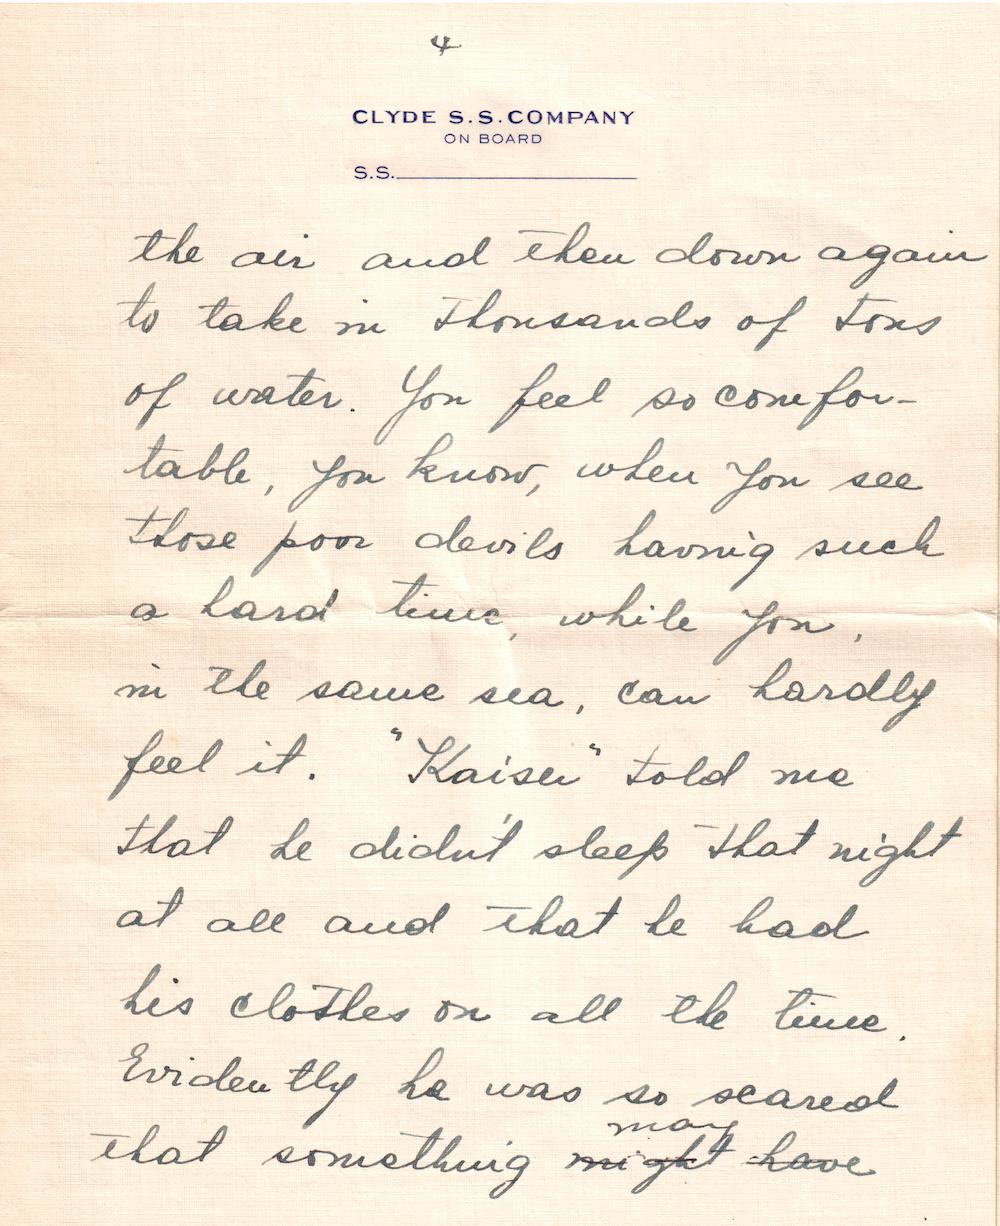 4
CLYDE S.S. COMPANY
ON BOARD
S.S.
the air and then down again
to take in thousands of tons
of water. You feel so comfor-
table, you know, when you see
those poor devils having such
a hard time, while you,
in the same sea, can hardly
feel it. "Kaiser" told me
that he didn't sleep that night
at all and that he had
his clothes on all the time.
Evidently he was so scared
may
that something might have